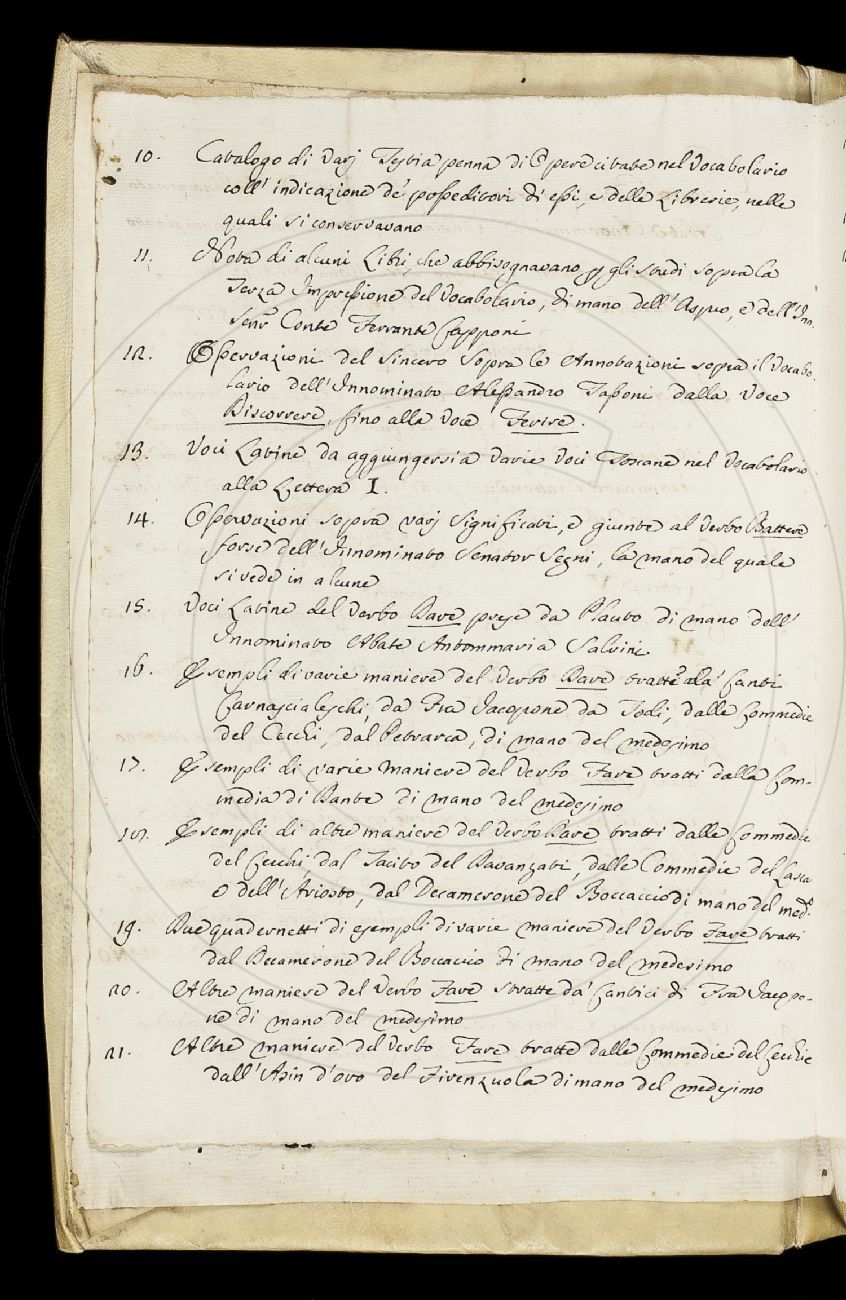 10. Catalogo di varj Testi a penna di Opere citate nel Vocabolario
coll' indicazione de' posseditori di essi, e delle Librerie, nelle
quali si conservavano
11. Nota di alcuni Libri, che abbisognavano p gli studi sopra la
Terza Impressione del Vocabolario, di mano dell' Aspro, e dell' Inn.
Senr Conte Ferrante Capponi
12. Osservazioni del Sincero sopra le Annotazioni sopra il Vocabo-
lario dell' Innominato Alessandro Tassoni dalla Voce
Discorrere, fino alla Voce Ferire.
13. Voci Latine da aggiungersi a varie Voci Toscane nel Vocabolario
alla Lettera I.
14. Osservazioni sopra varj significati, e giunte al Verbo Battere
forse dell' Innominato Senator Segni, la mano del quale
si vede in alcune
15. Voci Latine del Verbo Dare prese da Plauto di mano dell'
Innominato Abate Antommaria Salvini
16. Esempli di varie maniere del Verbo Dare tratte da' Canti
Carnascialeschi, da Fra Jacopone da Todi, dalle Commedie
del Cecchi, dal Petrarca, di mano del medesimo
17. Esempli di varie maniere del Verbo Fare tratti dalla Com-
media di Dante di mano del medesimo
18. Esempli di altre maniere del Verbo Dare tratti dalle Commedie
del Cecchi, dal Tacito del Davanzati, dalle Commedie del Lasca
e dell' Ariosto, dal Decamerone del Boccaccio di mano del medo.
19. Due quadernetti di esempli di varie maniere del Verbo Fare tratti
dal Decamerone del Boccaccio di mano del medesimo
20. Altre maniere del Verbo Fare stratte da' Cantici di Fra Jacopo-
ne di mano del medesimo
21. Altre maniere del Verbo Fare tratte dalle Commedie del Cecchi e
dall' Asin d'oro del Firenzuola di mano del medesimo